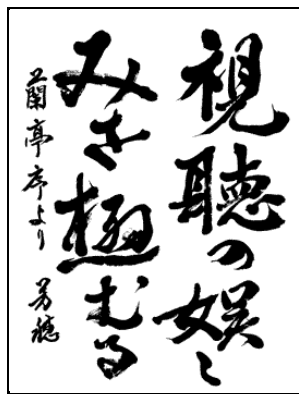 視聴の娯し
みを極むる
蘭亭序より 芳穂